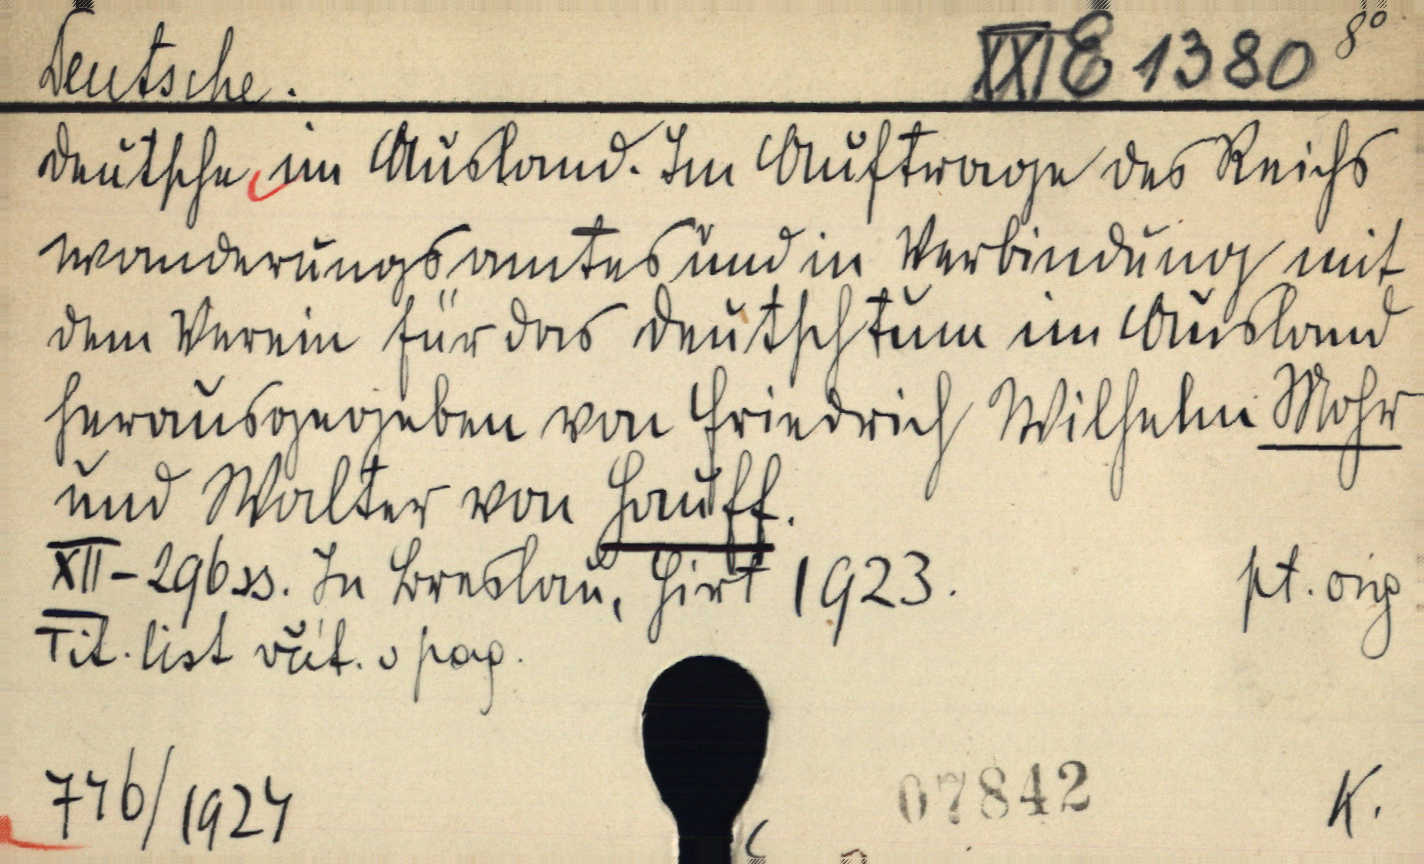 Deutsche.
XXI E 1380 8°
Deutsche im Ausland. Im Auftrage des Reichs
wanderungsamtes und in Verbindung mit
dem Verein für das Deutschtum im Ausland
herausgegeben von Friedrich Wilhelm Mohr
und Walter von Hauff.
XII-296 ss. In Breslau, Hirt 1923. pt. orig
Tit. list váz. v pag.
776/1924
07842 K.